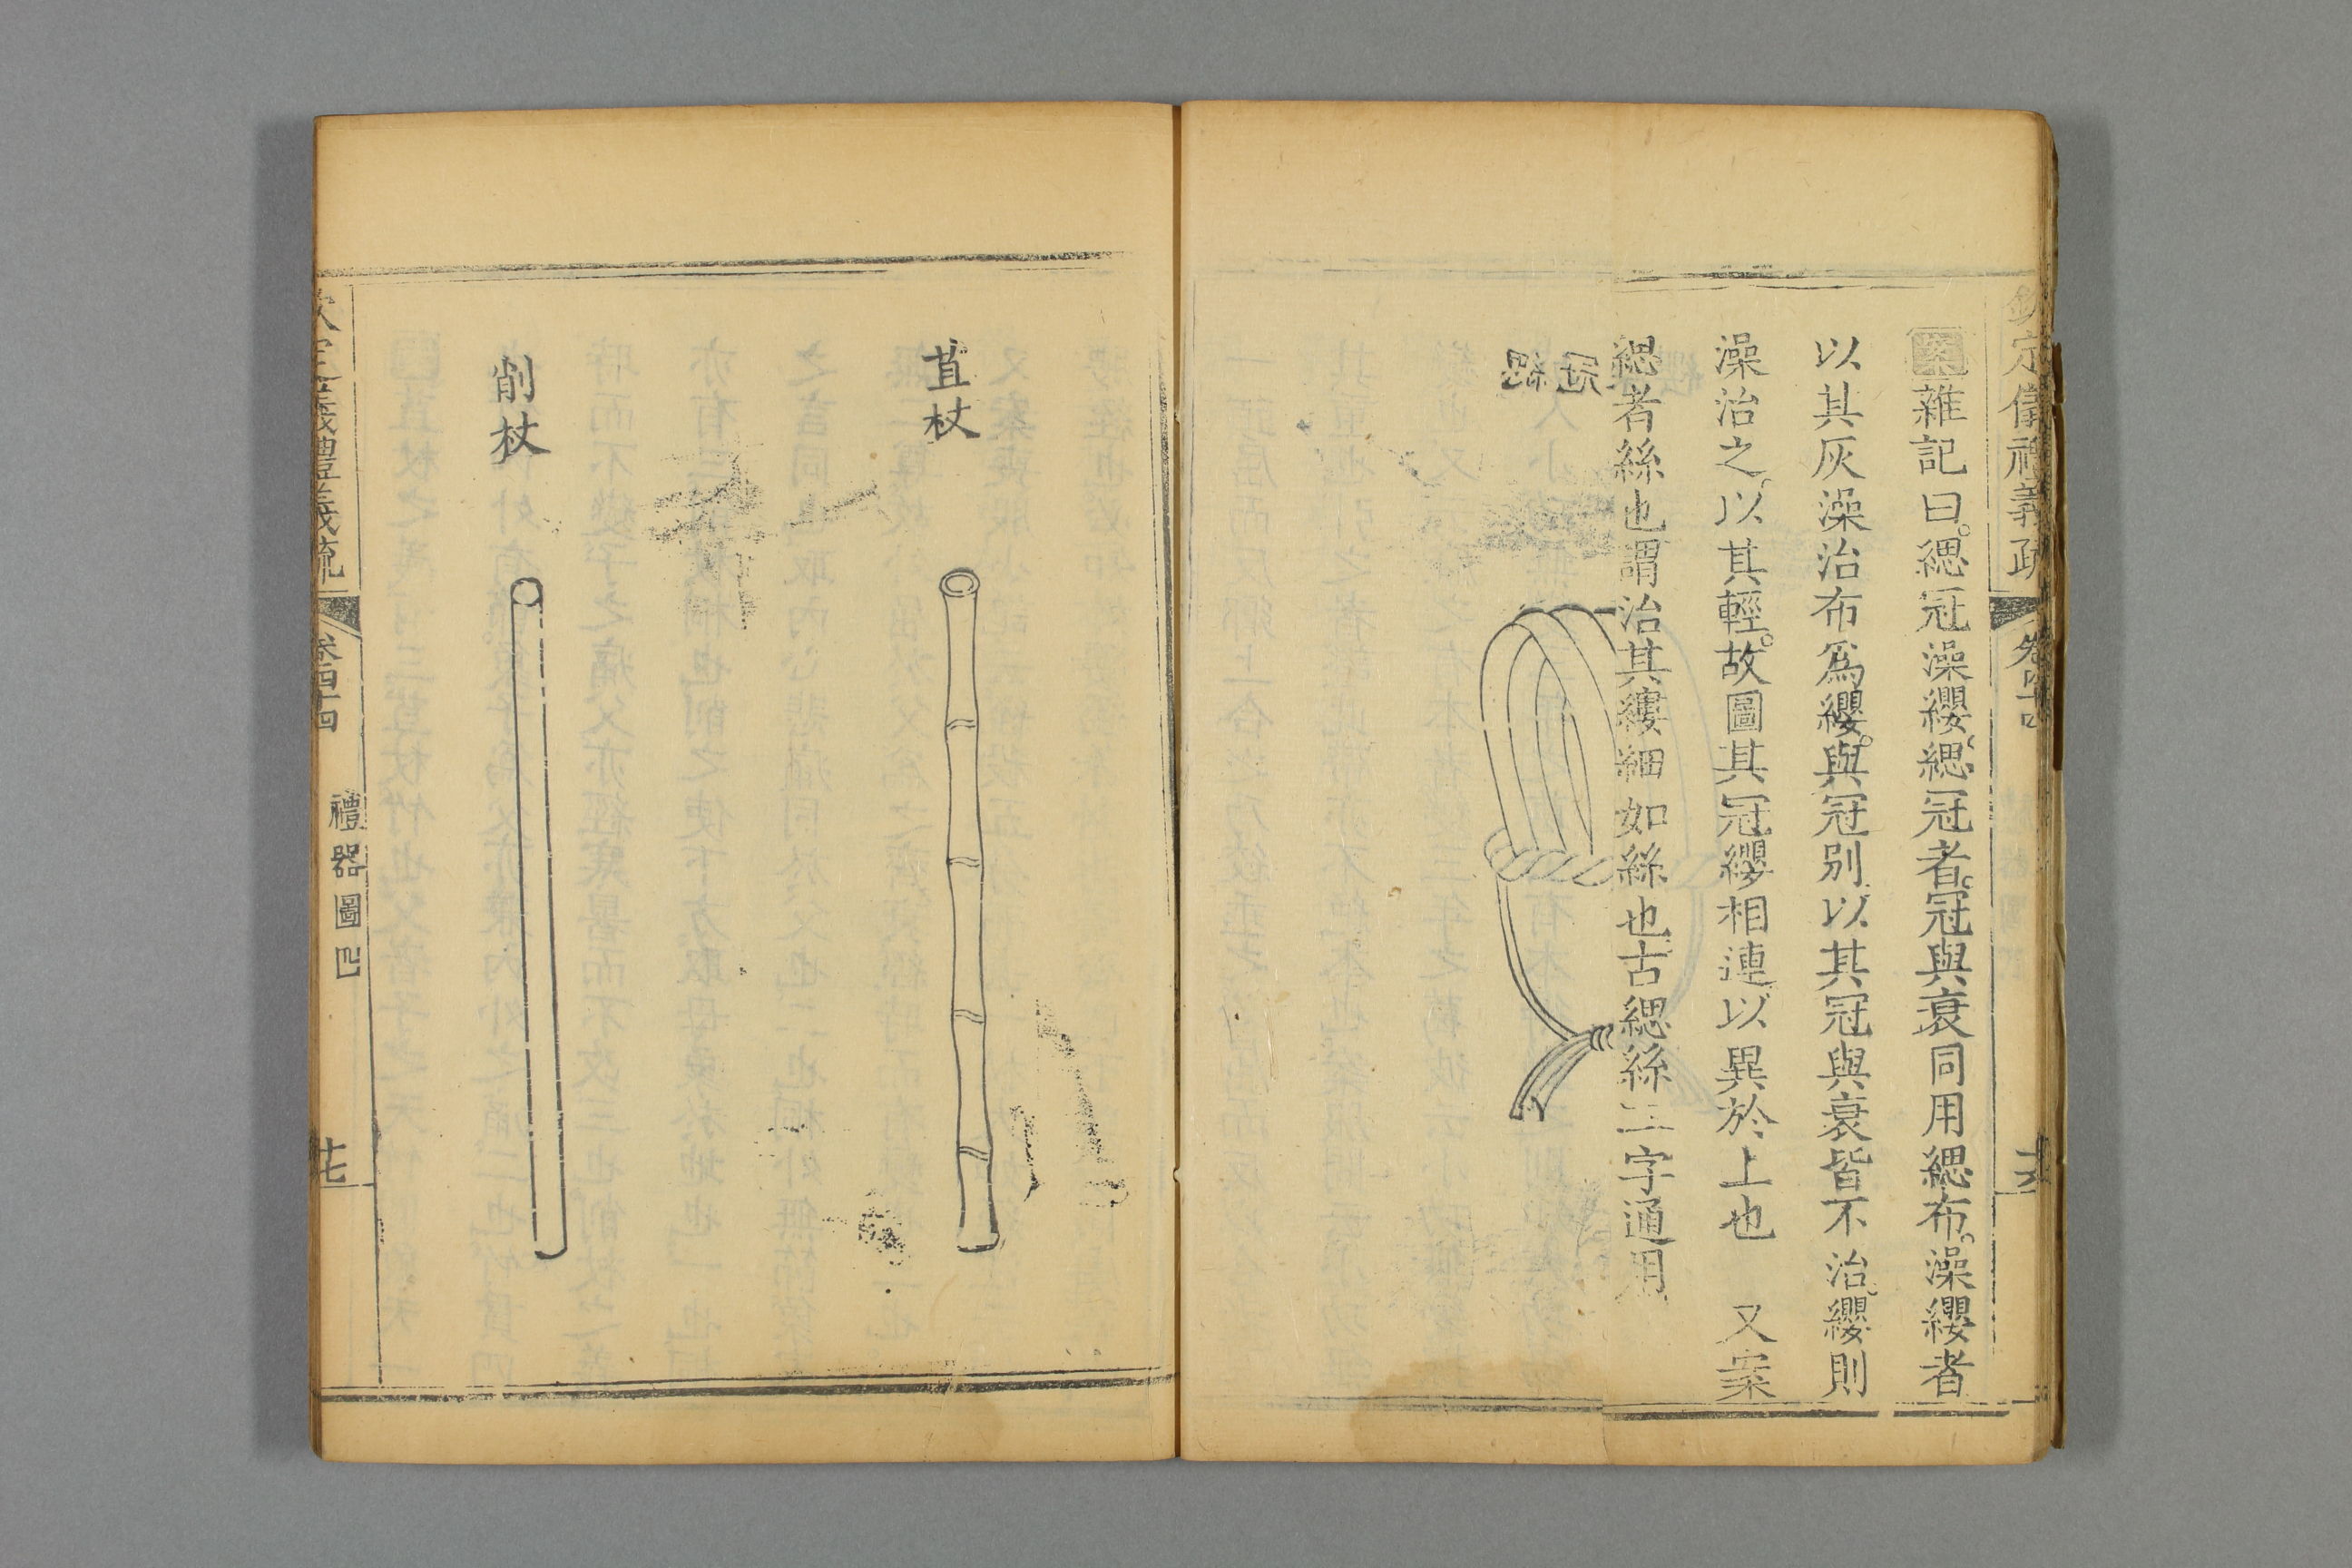 欽定儀禮義疏 卷四十四
案雜記曰。緦冠澡纓。緦冠者。冠與衰同用緦布。澡纓者
以其灰澡治布爲纓。與冠別以其冠與衰皆不治。纓則
澡治之。以其輕。故圖其冠纓相連以異於上也 又案
緦者絲也謂治其縷細如絲也古緦絲二字通用
苴杖
削杖
欽定儀禮義疏 卷四十四 禮器圖四 廿七